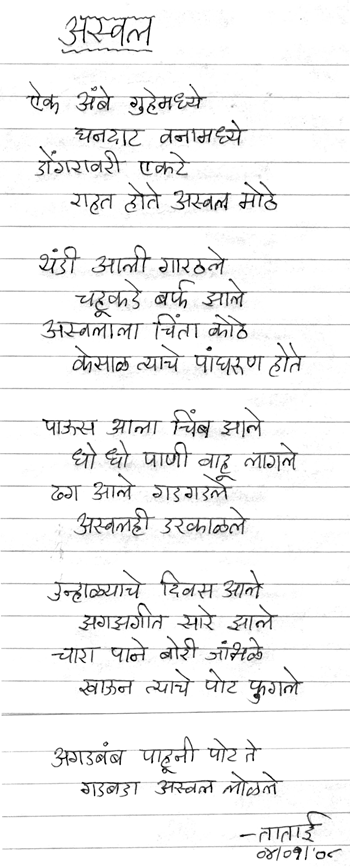 अस्वल
ऐक अंबे गुहेमध्ये
घनदाट वनामध्ये
डोंगरावरी एकटे
राहत होते अस्वल मोठे
थंडी आली गारठले
चहूकडे बर्फ झाले
अस्वलाला चिंता कोठे
केसाळ त्याचे पांघरुण होते
पाऊस आला चिंब झाले
धो धो पाणी वाहू लागले
ढग आले गडगडले
अस्वलही डरकाळले
उन्हाळ्याचे दिवस आले
झगझगीत सारे झाले
चारा पाने बोरी जांभळे
खाऊन त्याचे पोट फुगले
अगडबंब पाहूनी पोट ते
गडबडा अस्वल लोळले
-ताताई